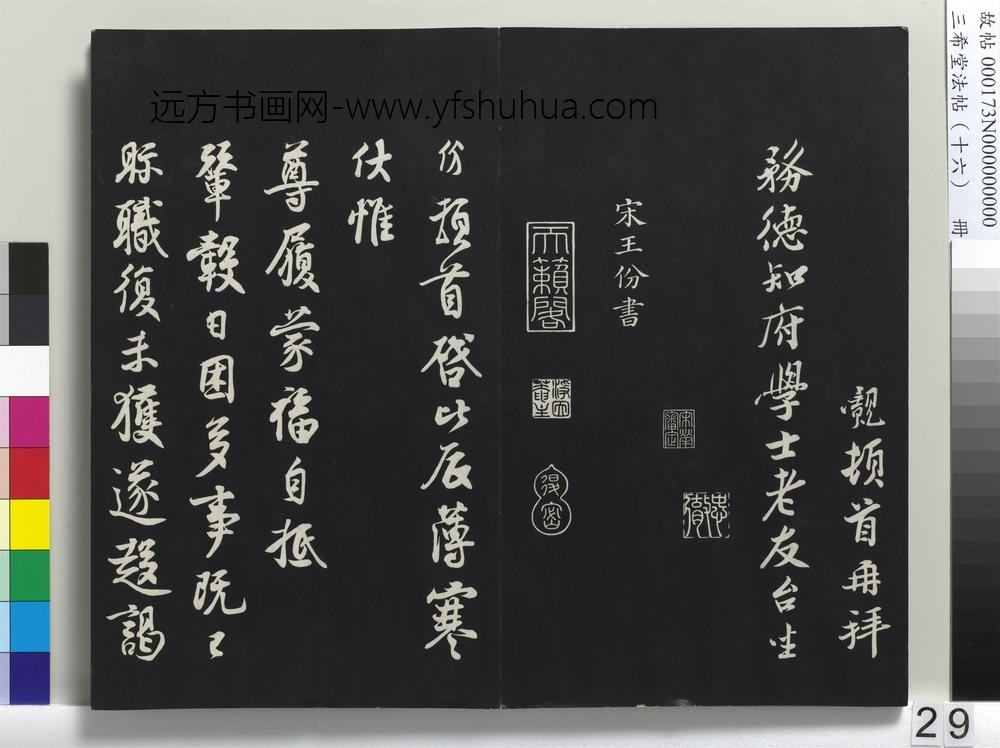 覿頓首再拜
務德知府學士老友台坐
宋王份書
天籟閣
份頓首啓比辰薄寒
伏惟
尊履蒙福自抵
輦轂日困多事既已
眎職復未獲遂趍謁
远方书画网-www.yfshuhua.com
故帖 000173N000000000
三希堂法帖（十六） 冊
29